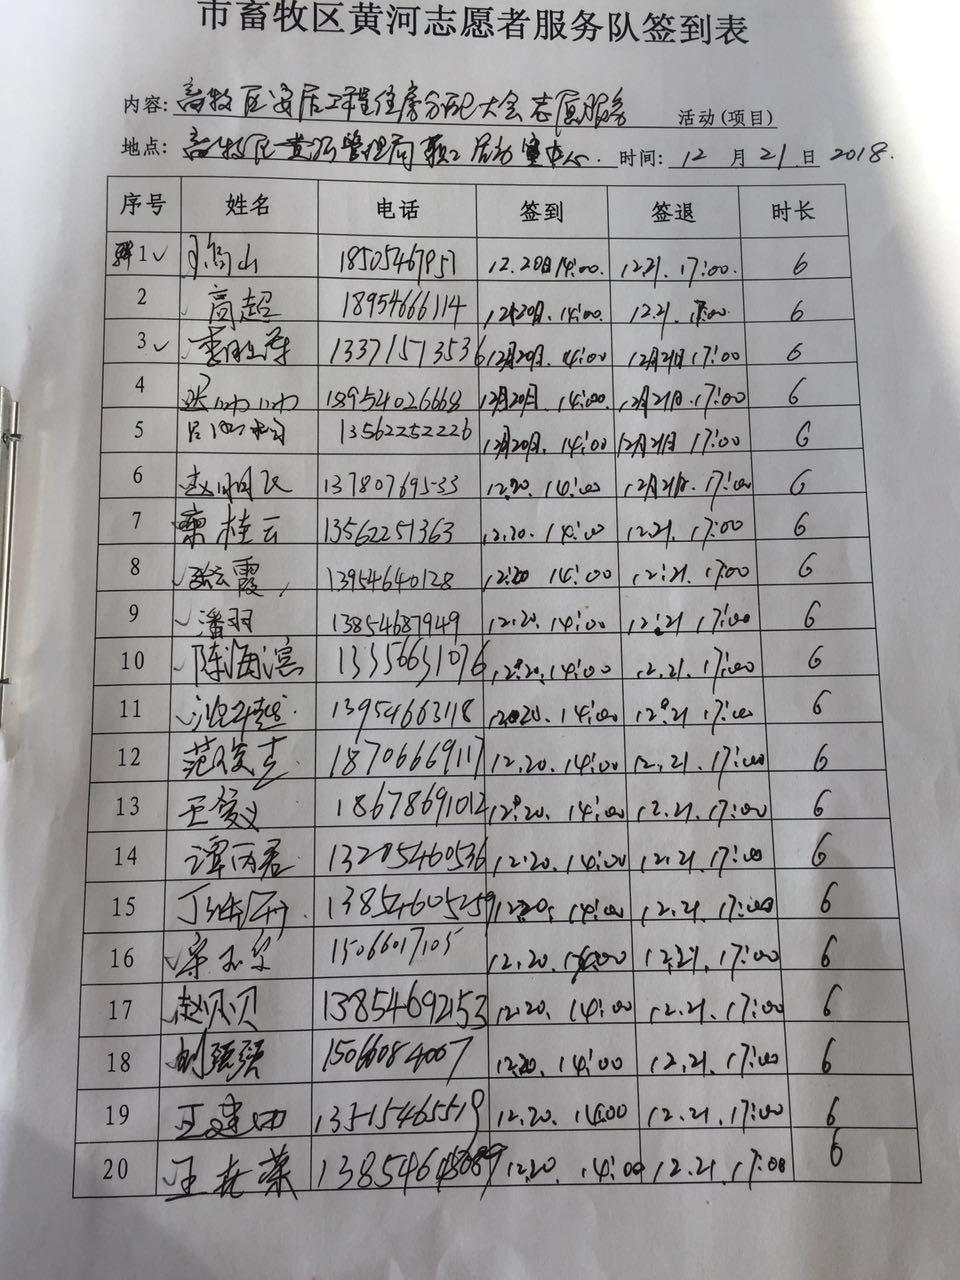 市畜牧区黄河志愿者服务队签到表
内容: 畜牧区安居工程住房分配大会志愿服务 活动(项目)
地点: 畜牧区黄河管理局职工活动中心. 时间: 12 月 21 日 2018.
序号 姓名 电话 签到 签退 时长
1 18505467957 12.20日14:00. 12.21. 17:00. 6
2 高超 18954666114 12月20日. 14:00. 12.21. 17:00. 6
3 13371513536 12月20日. 14:00 12月21日 17:00 6
4 迟帅帅 18954026668 12月20日. 14:00. 12月21日. 17:00 6
5 13562252226 12月20日. 14:00 12月21日 17:00 6
6 赵明良 13780769533 12.20. 14:00 12月21日. 17:00 6
7 栾桂云 13562251363 12.20. 14:00 12.21. 17:00 6
8 张云霞 13954640128 12.20 14:00 12.21. 17:00 6
9 潘羽 13854687949 12.20. 14:00 12.21 17:00 6
10 陈海滨 13356631076 12.20. 14:00 12.21. 17:00 6
11 13954663118 12.20. 14:00 12.21 17:00 6
12 范俊吉 18706669117 12.20. 14:00 12.21. 17:00 6
13 王爱义 18678691012 12.20. 14:00 12.21. 17:00 6
14 谭丙君 13205460536 12.20. 14:00 12.21. 17:00 6
15 13854605259 12.20. 14:00 12.21. 17:00 6
16 15066017105 12.20. 14:00 12.21. 17:00 6
17 赵贝贝 13854692153 12.20. 14:00 12.21. 17:00 6
18 刘强强 15066084007 12.20. 14:00 12.21. 17:00 6
19 王建田 13515465519 12.20. 14:00 12.21. 17:00 6
20 12.20. 14:00 12.21. 17:00 6